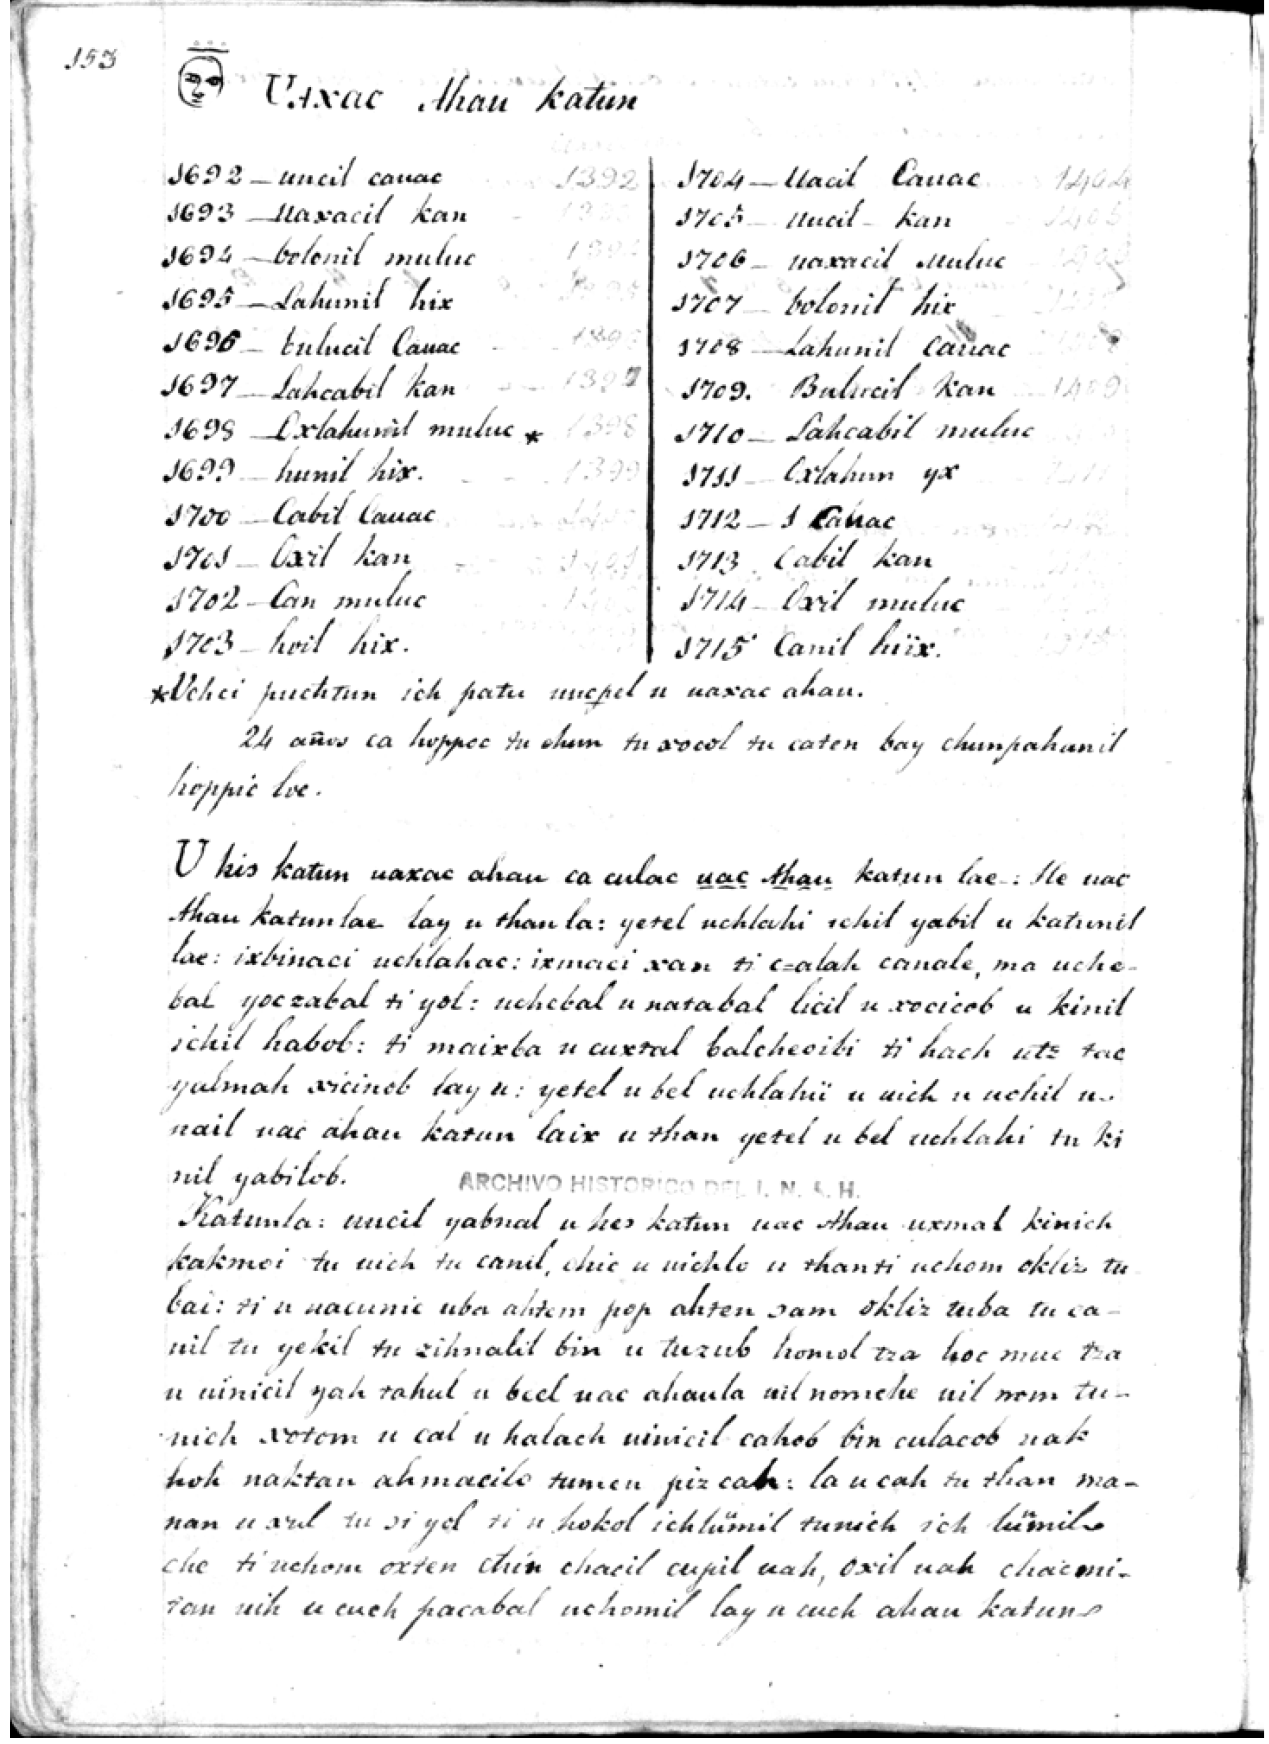 153
Uaxac Ahau katun
1692 — uucil cauac
1693 — Uaxacil kan
1694 — bolonil muluc
1695 — Lahunil hix
1696 — bulucil Cauac
1697 — Lahcabil kan
1698 — Oxlahunil muluc *
1699 — hunil hix.
1700 — Cabil Cauac
1701 — Oxil kan
1702 — Can muluc
1703 — hoil hix.
1704 — Uacil Cauac
1705 — uucil kan
1706 — uaxacil Muluc
1707 — bolonil hix
1708 — Lahunil Cauac
1709. Bulucil kan
1710 — Lahcabil muluc
1711 — Oxlahun yx
1712 — 1 Cauac
1713 Cabil kan
1714 — Oxil muluc
1715 Canil hiix.
*Uchci puchtun ich patu uucpel u uaxac ahau.
24 años ca hoppoc tu chun tu xocol tu caten bay chunpahanil
hoppic loe.
U his katun uaxac ahau ca culac uac Ahau katun lae: He uac
Ahau katunlae lay u than la: yetel uchlahi ichil yabil u katunil
lae: ixbinaci uchlahac: ixmaci xan ti czalah canale, ma uche-
bal yoczabal ti yol: uchebal u natabal licil u xocicob u kinil
ichil habob: ti maixba u cuxtal balcheoibi ti hach utz tac
yulmah xicinob lay u: yetel u bel uchlahii u uich u uchil u-
nail uac ahau katun laix u than yetel u bel uchlahi tu ki
nil yabilob.
ARCHIVO HISTORICO DEL I. N. A. H.
Katunla: uucil yabnal u hes katun uac Ahau uxmal kinich
kakmoi tu uich tu canil, chic u uichlo u thanti uchom okliz tu
bai: ti u uacunic uba ahtem pop ahten sam okliz tuba tu ca-
nil tu yekil tu zihnalil bin u tuzub homol tza hoc muc tza
u uinicil yah tahul u beel uac ahaula uil nomche uil nom tu-
nich xotom u cal u halach uinicil cahob bin culacob nak
hoh naktan ahmacilo tumen piz cah: la u cah tu than ma-
nan u xul tu si yol ti u hokol ichlümil tunich ich lümil
che ti uchom oxten chin chacil cupil uah, oxil uah chacmi-
tan uih u cuch pacabal uchomil lay u cuch ahau katun